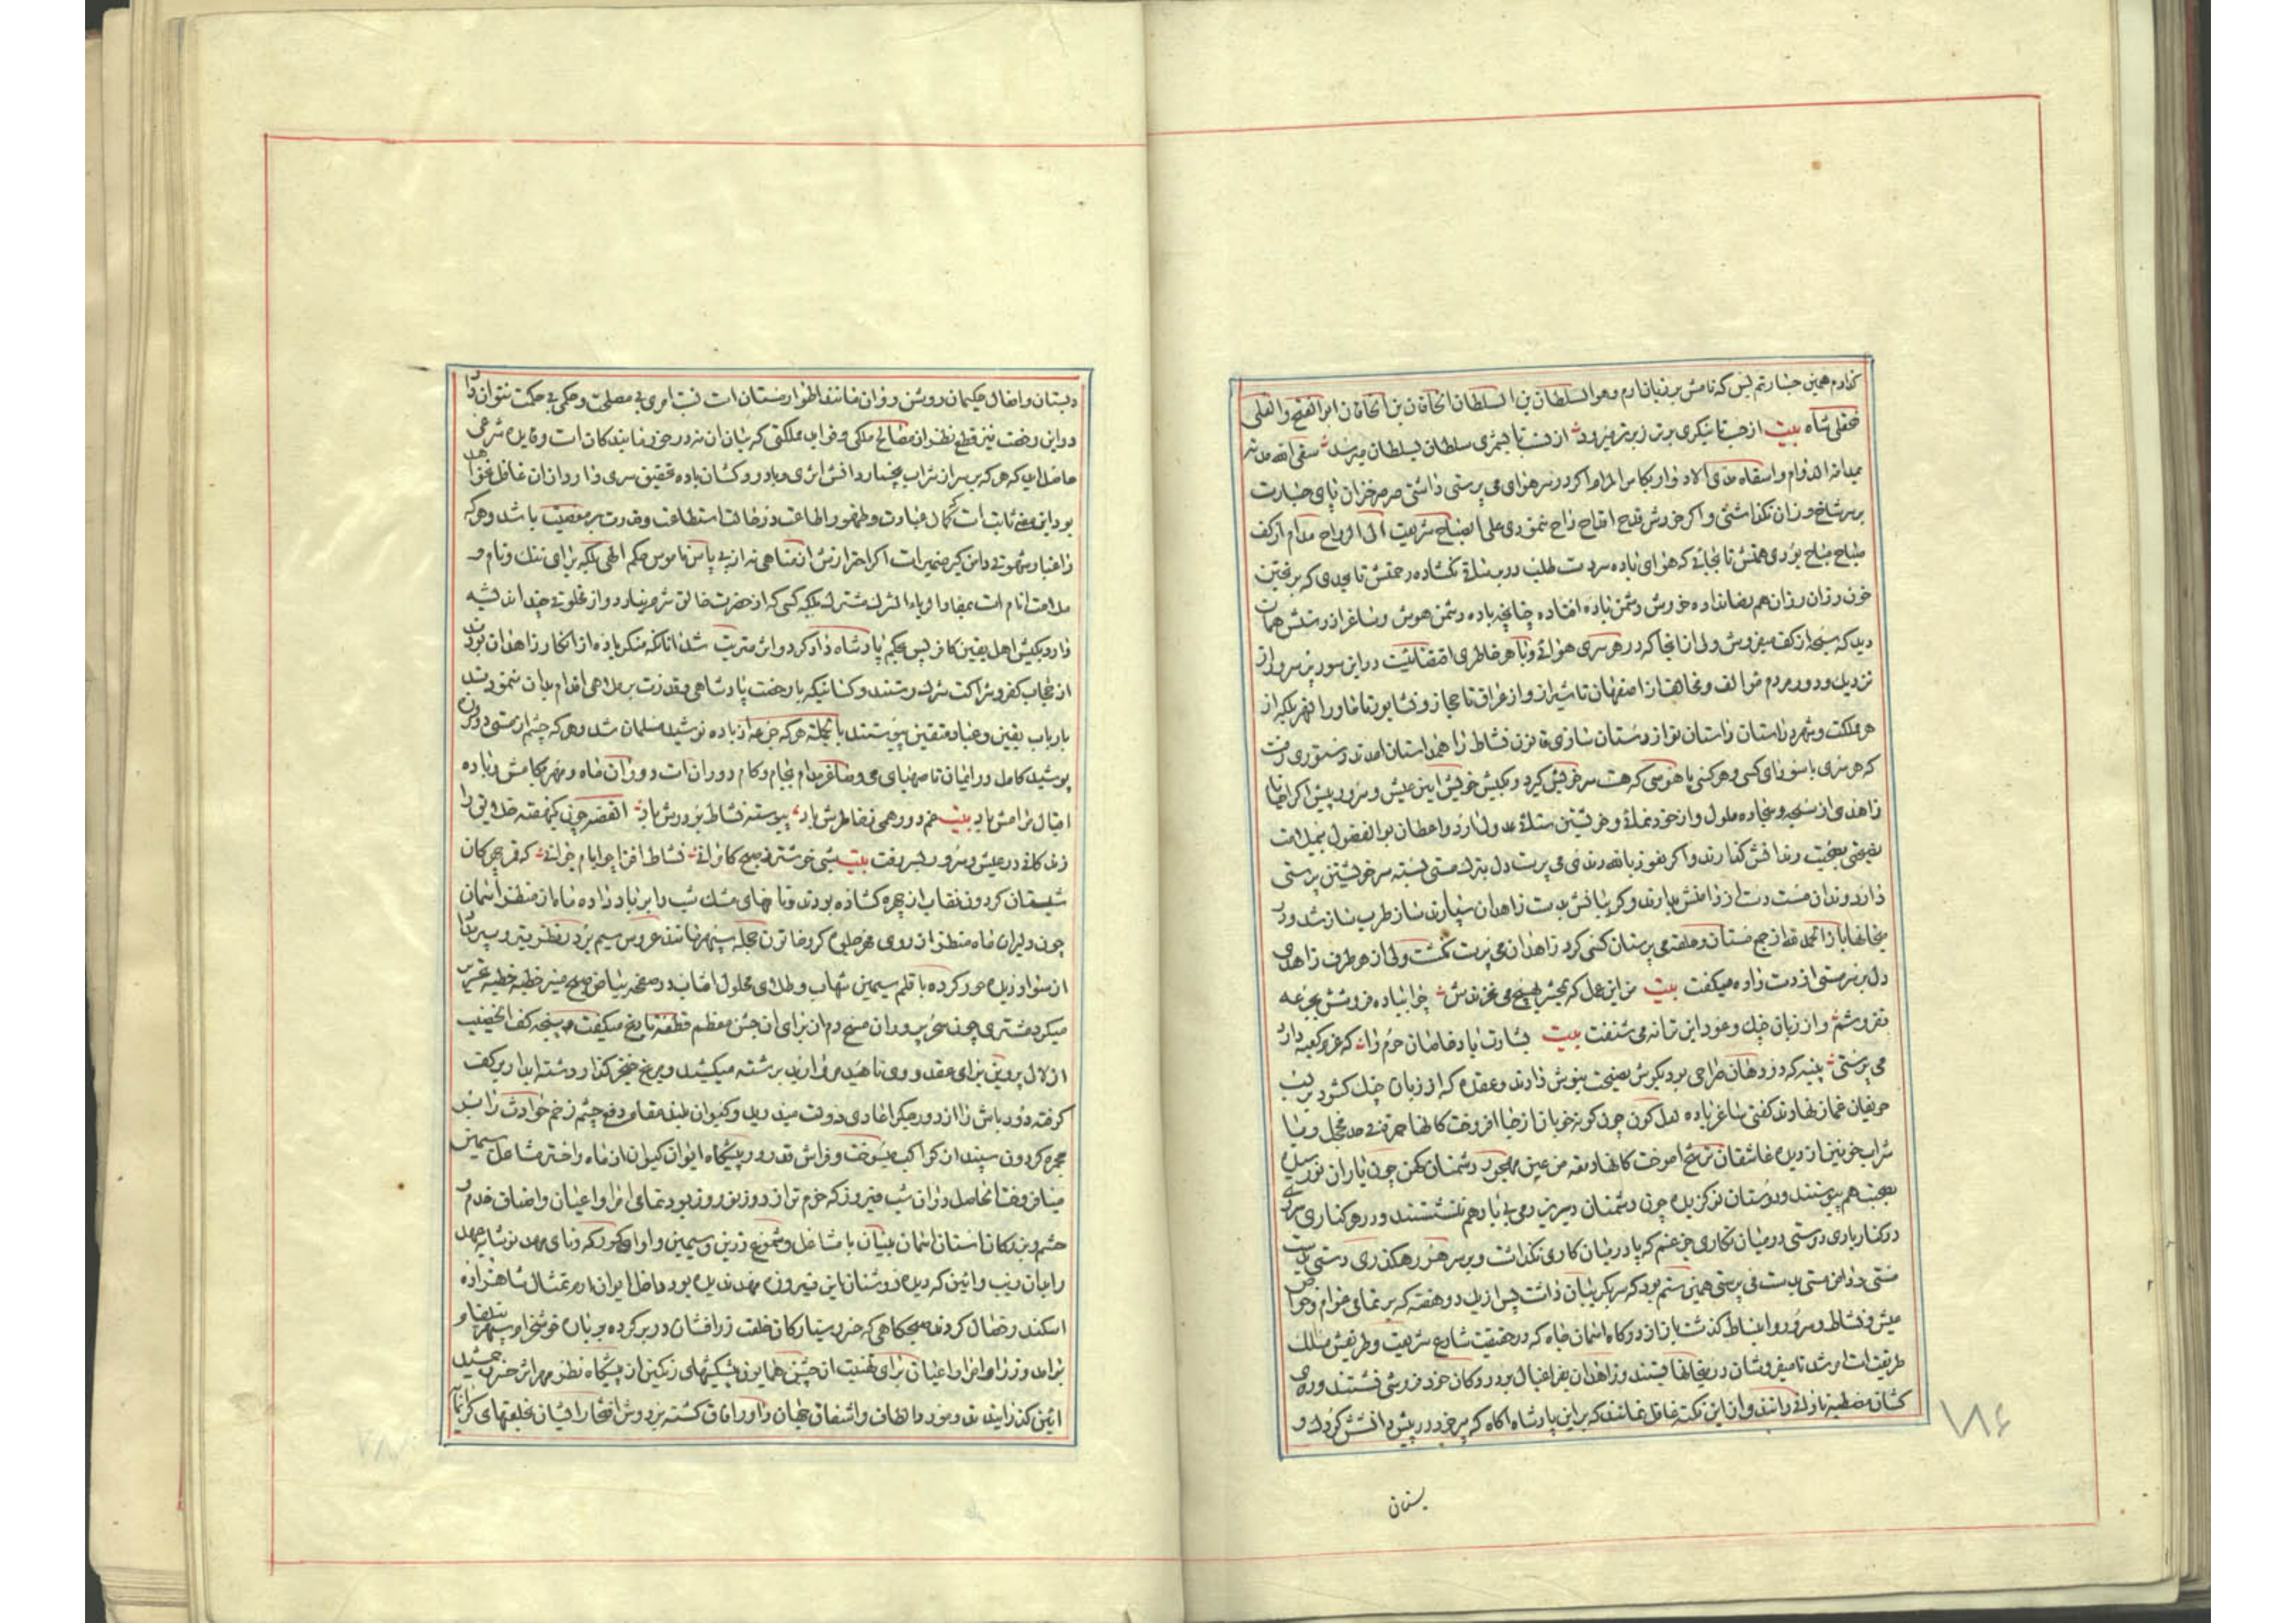 کدارم همین جسارتم بس که نامش بر زبان ارم وهو السلطان بن السلطان الخاقان بن الخاقان ابو الفتح والعلی
فتحعلی شاه بیت از جد تا بنگری برتر زبرتر میرود از نسب تا بشمری سلطان بسلطان میرسد سقی الله
الدوام واسقاه مدی الادوار بکاس المرام اکر در سر هوای می پرستی داشتی صرصر خزان پای جسارت
بر سر شاخ رزان نکذاشتی واکر خورش قدح اقداح راح ننمودی علی الصباح شریعت الی الرواح مدام از کف
مباح بودی همتش تا بجائی که هوای باده سردست طلب نکشاده رحمتش تا بحدی که بر ریختن
خون رزان هم رضا نداده خورش دشمن باده افتاده چنانچه باده دشمن هوش وساغر از دستش همان
دید که سبحه از کف میفروش ولی از انجا که در هر سری هوائی وبا هر خاطری اقتضائیست در این سور پر سرور از
نزدیک ودور مردم موالف ومخالف از اصفهان تا شیراز واز عراق تا حجاز ونشابور تا ماورا النهر بلکه از
هر مملکت وشهر داستان نواز دستان سازی قانون نشاط را همداستان امدند دستوری رفت
که هر سری با سودای کسی وهر کسی با هوسی که هست سر خویش کیرد وبکیش خویش این عیش وسرور پیش اکر احیانا
زاهدی از سبحه وسجاده ملول واز خود نمائی وخویشتن ستائی عدول دارد واعظان بو الفضول بملامت
نصیحتی بعجبت رندانش کذارند واکر نعوذ بالله رندی می پرست دل بترک مستی بسته سر خویشتن پرستی
دارد رندان مست دست از دامنش بدارند وکریبانش بدست زاهدان سپارند ساز طرب ساز شد ودر
میخانها باز از جمع مستان وحلقه می پرستان کسی کرد زاهدان می پرست نکشت ولی از هر طرف زاهدی
دل بر سر مستی از دست داده میکفت بیت من این عمل که بحشر بهیچ می نخرندش چرا بباده فروشش بجرعه
نفروشم واز زبان چنک وعود این ترانه می شنفت بیت بشارت باد خاصان حرم را که عزم کعبه دارد
می پرستی پنبه که در دهان صراحی بود بکوش نصیحت نیوش دادند وعقده که از زبان چنک کشود بر لب
حریفان غماز نهادند کفتی ساغر باده لعل کون چون کونه خوبان از حیا افروخت کانها حمرة خجل ویا
شراب خونین از دیده عاشقان ترشح اموخت کانها دمعة من عین مهجور دشمنان کهن چون یاران نورسیده
بعجبت هم پیوستند ودوستان نوکزیده چون دشمنان دیرینه دمی بی یاد هم ننشستند ودر هر کناری سری
در کنار یاری دوستی در میان نکاری جز غم که پا در میان کاری نکذاشت وبر سر هر رهکذری دستی بدست
مستی دامن مستی بدست می پرستی همین ستم بود که سر بکریبان داشت پس از یک دو هفته که بر تمامی عوام وخواص
عیش ونشاط وسرور وانبساط کذشت باز از درکاه اسمان جاه که در حقیقت شارع شریعت وطریقش مسلک
طریقت است امر شد تا میفروشان در میخانها بستند وزاهدان بفراغبال بر در دکان خود فروشی نشستند ودردی
کشان مصطبه نادانی دانند واز این نکته غافل نمانند که بر این پادشاه اکاه که پیر خرد در پیش دانشش کودک
بستان
۷۸۶
دبستان وافعال حکیمان روشن روان مانند اطوار مستان است نسبت امری بی مصلحت وحکمی بی حکمت نتوان داد
ودر این رخصت نیز قطع نظر از مصالح ملکی وفواید مملکتی که بیان ان نه در خور ما بندکان است وفایده شرعی
حاصل اید که هر که بر سر از شراب پندار دانش اثری دارد ودردکشان باده تحقیق سری دارد از ان غافل نخواهد
بود این معنی ثابت است کمال عبادت وظهور اطاعت در حالت استطاعت وقدرت بر معصیت باشد وهر که
را غبار شهوتی دامن کیر ضمیر است اکر احترازش از مناهی نه از پی پاس ناموس حکم الهی بلکه برای ننک ونام و
ملامت انام است بمفاد الریاء الشرک مشرک بلکه کسی که از حضرت خالق شرم نیارد واز مخلوقی چند اندیشه
دارد بکیش اهل یقین کافر پس بحکم پادشاه دادکر دو اثر مترتب شد انانکه منکر باده از انکار زاهدان بودند
از حجاب کفر وشراکت شرک رستند وکسانیکه با رخصت پادشاهی وقدرت بر ملاهی اقدام بدان ننمودند
بارباب یقین وعباد متقین پیوستند بالجمله هر که جرعه از باده نوشید مسلمان شد وهر که چشم از مستی دوران
پوشید کامل در ایمان تا صهبای می وساغر مدام بجام وکام دوران است دوران ماه ومهر بکامش وباده
اقبال در جامش باد بیت غم دور همی ز خاطرش باد پیوسته نشاط بر درش باد القصه چون یکهفته خلایق را
زندکانی در عیش وسرور بسر رفت بیت شبی خوشتر ز صبح کامرانی نشاط افزا چو ایام جوانی که
شبستان کردون نقاب از چهره کشاده بودند ونافهای مشک شب را بر باد داده شاه از منظر اسمان
چون دلبران ماه منظر از روی مهر جلوه کر وخاتون حجله سپهر مانند عروس سیم بر در نظر تیر دبیر مداد
از سواد زلف حور کرده با قلم سیمین شهاب وطلای محلول افتاب در صفحه بیاض صبح منیر خطبه خطبه تحریر
میکرد مشتری چون سخن پروران مسیح دم از برای ان جشن معظم قطعه تاریخ میکفت پنجه کف الخضیب
از لال پروین برای عقد وروی ناهید مروارید بر رشته میکشید ومریخ خنجر کذار دشنه ابدار بر کف
کرفته دور باش را از دور جیکر اعادی دولت میدرید وکیوان بلند مقام دفع چشم زخم حوادث را بر
مجمره کردون سپند از کواکب میسوخت وفراش قدر در پیشکاه ایوان کیوان از ماه واختر مشاعل سیمین
میافروخت الحاصل در ان شب فیروز که خرم تر از روز نوروز بود تمامی امرا واعیان واصناف خدم و
حشم وبندکان استان اسمان بنیان با مشاعل وشموع زرین وسیمین واوای کورکه ونای مهد نوشابه عهد
را بان زیب وائین که دیده روشنان این فیروزه مهد ندیده بود داخل ایوان ارم تمثال شاهزاده
اسکندر خصال کردند صبحکاهی که خسرو سیارکان خلعت زرافشان در بر کرده بر باره خوشخرام سپهر
برامد وزرا وامرا واعیان برای تهنیت ان جشن همایون پیشکشهای رنکین از پیشکاه نظر مهر اثر خسرو جمشید
ائین کذرانیدند ومورد الطاف واشفاق جهان داور افاق کشته بر دوش افتخار ایشان خلعتهای کرانمایه